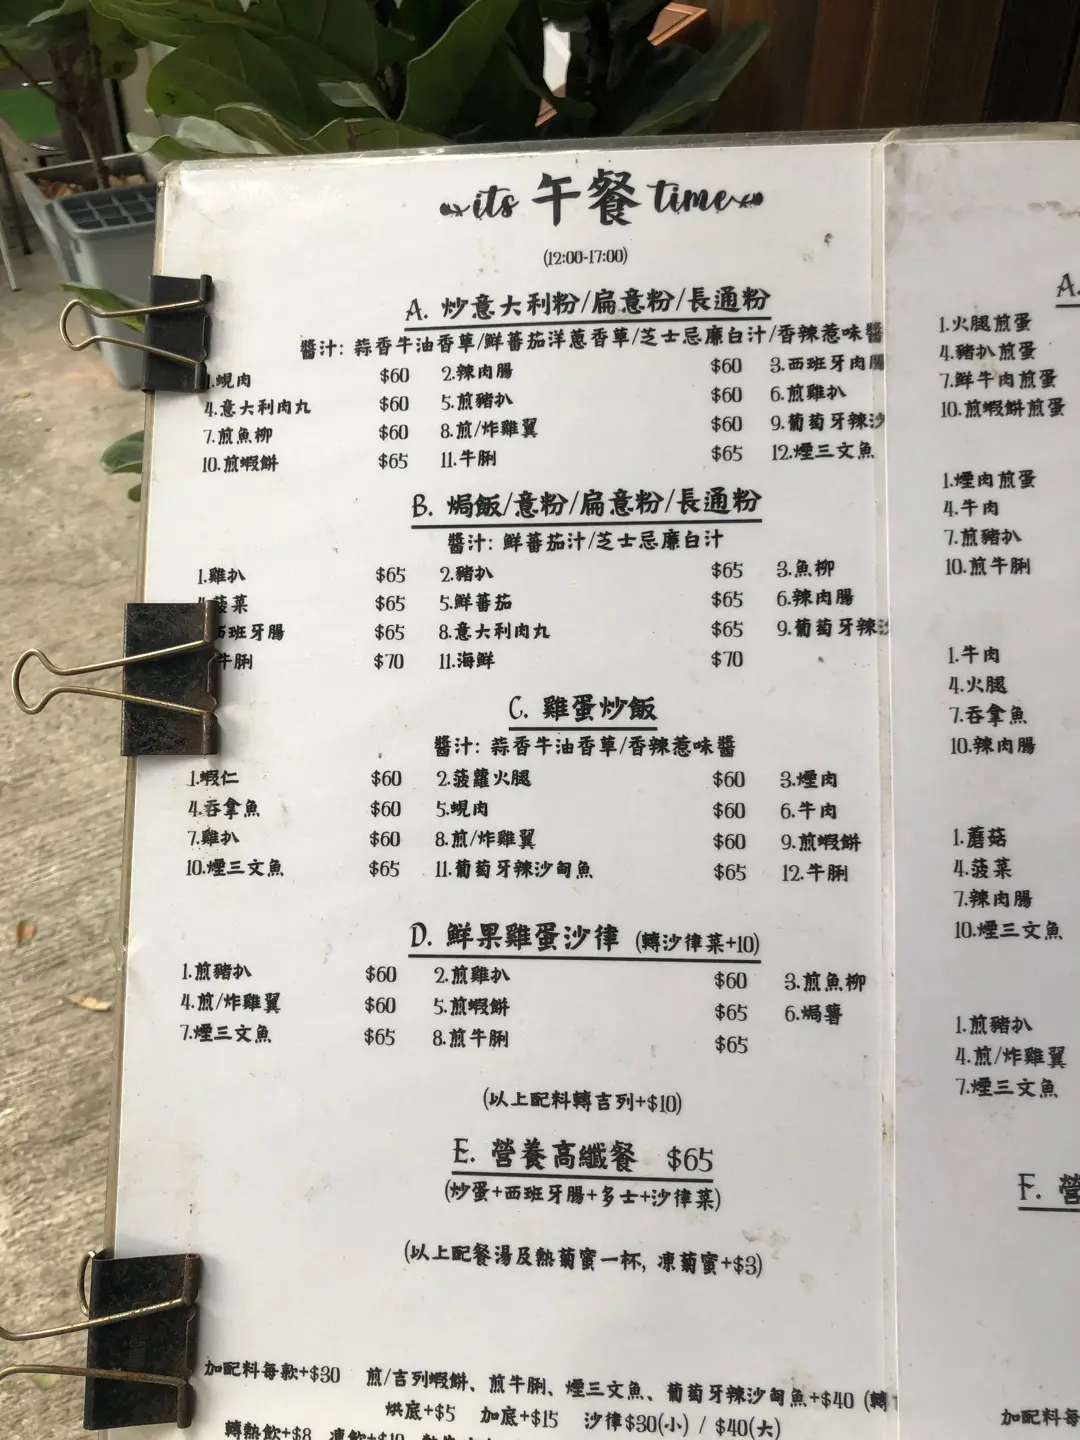 its 午餐 time
(12:00-17:00)
A. 炒意大利粉/扁意粉/長通粉
醬汁: 蒜香牛油香草/鮮蕃茄洋蔥香草/芝士忌廉白汁/香辣惹味醬
1.蜆肉 $60 2.辣肉腸 $60 3.西班牙肉腸
4.意大利肉丸 $60 5.煎豬扒 $60 6.煎雞扒
7.煎魚柳 $60 8.煎/炸雞翼 $60 9.葡萄牙辣沙
10.煎蝦餅 $65 11.牛脷 $65 12.煙三文魚
B. 焗飯/意粉/扁意粉/長通粉
醬汁: 鮮蕃茄汁/芝士忌廉白汁
1.雞扒 $65 2.豬扒 $65 3.魚柳
4.菠菜 $65 5.鮮蕃茄 $65 6.辣肉腸
西班牙腸 $65 8.意大利肉丸 $65 9.葡萄牙辣
牛脷 $70 11.海鮮 $70
C. 雞蛋炒飯
醬汁: 蒜香牛油香草/香辣惹味醬
1.蝦仁 $60 2.菠蘿火腿 $60 3.煙肉
4.吞拿魚 $60 5.蜆肉 $60 6.牛肉
7.雞扒 $60 8.煎/炸雞翼 $60 9.煎蝦餅
10.煙三文魚 $65 11.葡萄牙辣沙甸魚 $65 12.牛脷
D. 鮮果雞蛋沙律 (轉沙律菜+10)
1.煎豬扒 $60 2.煎雞扒 $60 3.煎魚柳
4.煎/炸雞翼 $60 5.煎蝦餅 $65 6.焗薯
7.煙三文魚 $65 8.煎牛脷 $65
(以上配料轉吉列+$10)
E. 營養高纖餐 $65
(炒蛋+西班牙腸+多士+沙律菜)
(以上配餐湯及熱菊蜜一杯, 凍菊蜜+$3)
加配料每款+$30 煎/吉列蝦餅、煎牛脷、煙三文魚、葡萄牙辣沙甸魚+$40 (轉
烘底+$5 加底+$15 沙律$30(小) / $40(大)
轉熱飲+$8 凍飲+$10
A.
1.火腿煎蛋
4.豬扒煎蛋
7.鮮牛肉煎蛋
10.煎蝦餅煎蛋
1.煙肉煎蛋
4.牛肉
7.煎豬扒
10.煎牛脷
1.牛肉
4.火腿
7.吞拿魚
10.辣肉腸
1.蘑菇
4.菠菜
7.辣肉腸
10.煙三文魚
1.煎豬扒
4.煎/炸雞翼
7.煙三文魚
F. 營
加配料每